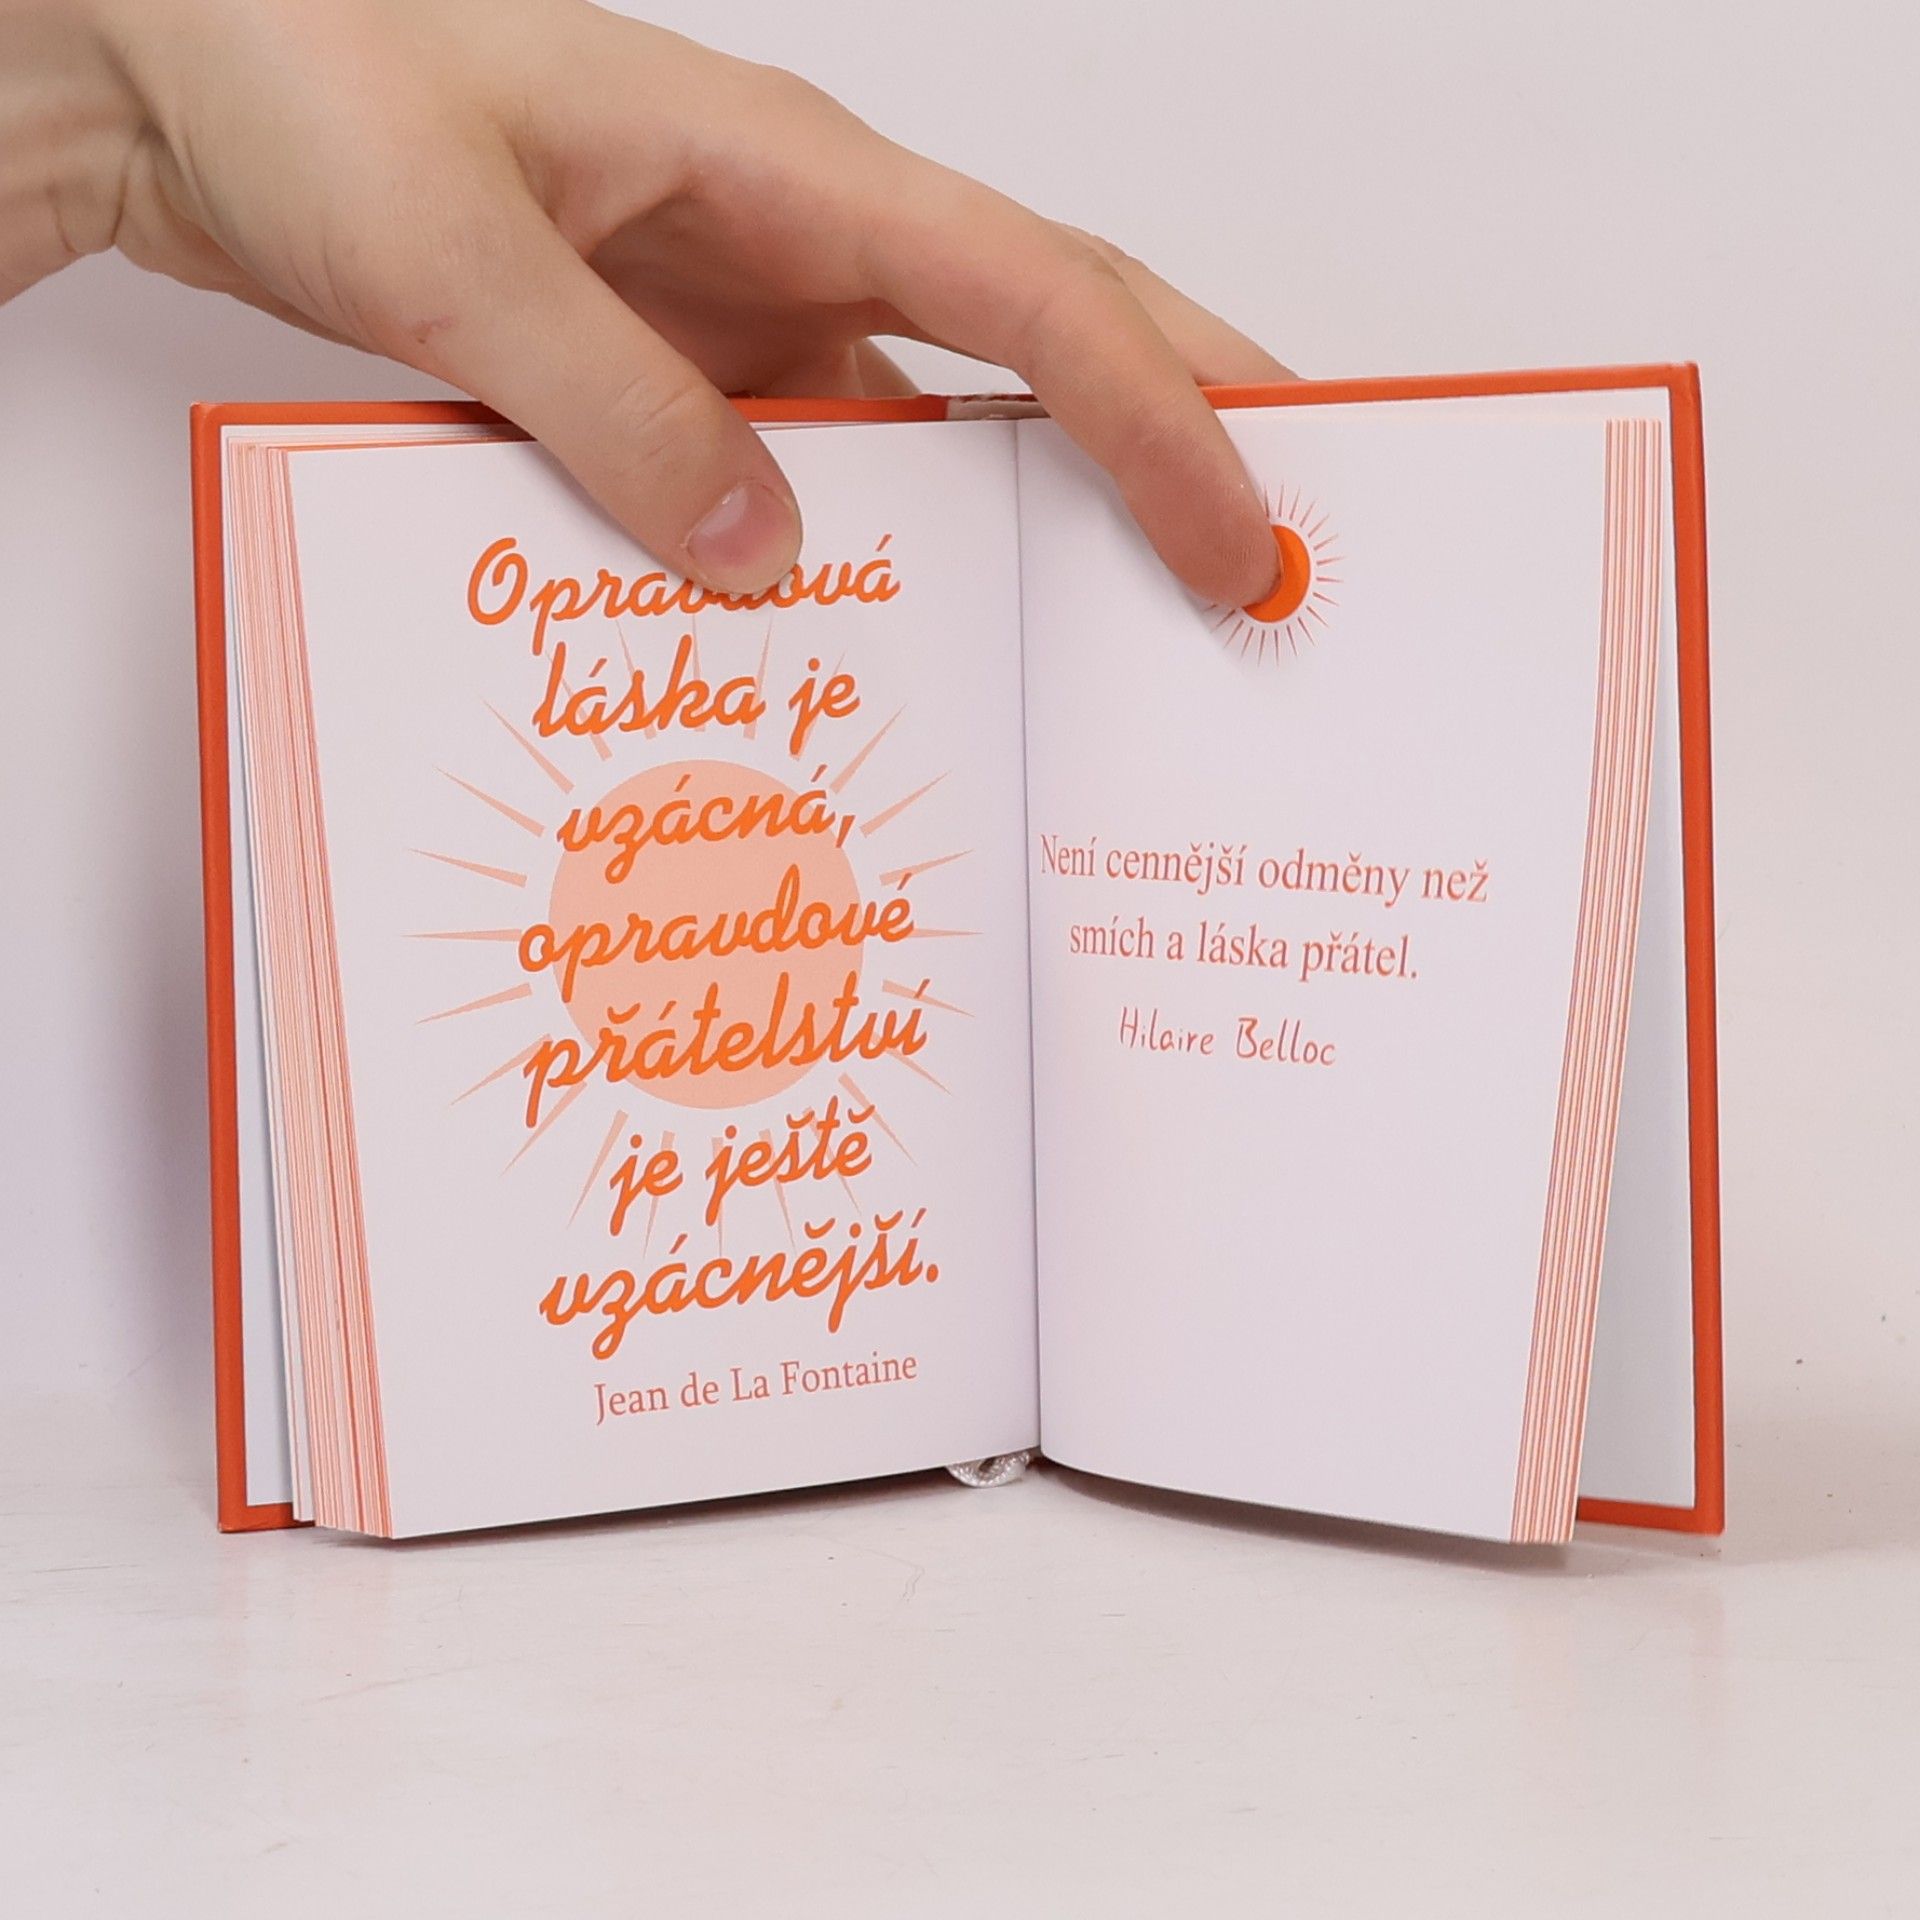 Opravdová
láska je
vzácná,
opravdové
přátelství
je ještě
vzácnější.
Jean de La Fontaine
Není cennější odměny než
smích a láska přátel.
Hilaire Belloc